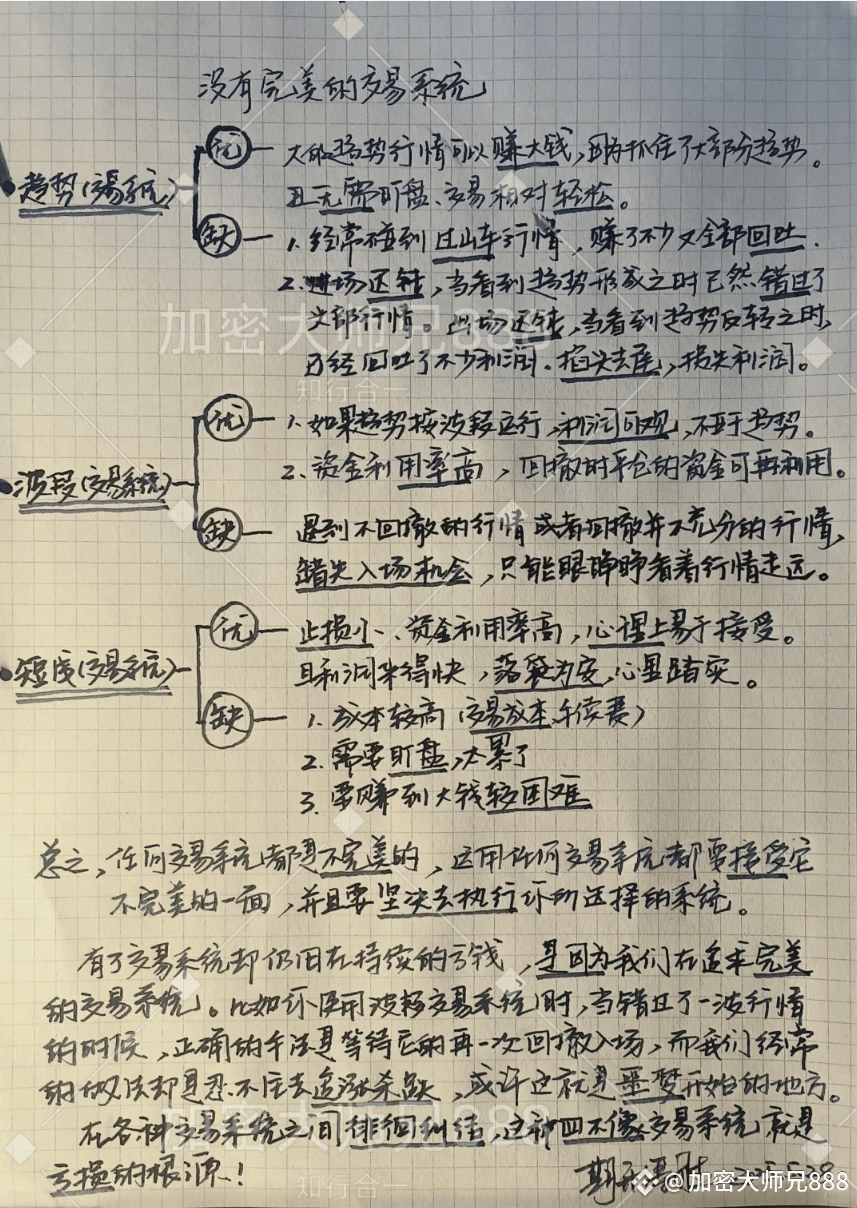 没有完美的交易系统
优 大的趋势行情可以赚大钱,因为抓住了大部分趋势。
•趋势(交易系统) 且无需盯盘、交易相对轻松。
缺 1.经常碰到过山车行情,赚了不少又全部回吐.
2.进场迟钝,当看到趋势形成之时已然错过了
头部行情。出场迟钝,当看到趋势反转之时,
加密大师兄888
已经回吐了不少利润.掐头去尾,损失利润。
知行合一
优 1.如果趋势按波段运行,利润可观,不亚于趋势。
•波段(交易系统) 2.资金利用率高,回撤时平仓的资金可再利用。
缺 遇到不回撤的行情或者回撤并不充分的行情,
错失入场机会,只能眼睁睁看着行情走远。
优 止损小、资金利用率高,心理上易于接受。
•短线(交易系统) 且利润来得快,落袋为安,心里踏实。
缺 1.成本较高(交易成本,手续费)
2.需要盯盘,太累了
3.要赚到大钱较困难
总之,任何交易系统都是不完美的,运用任何交易系统都要接受它
不完美的一面,并且要坚决去执行你所选择的系统。
有了交易系统却仍旧在持续的亏钱,是因为我们在追求完美
的交易系统。比如你使用波段交易系统时,当错过了一波行情
的时候,正确的手法是等待它的再一次回撤入场,而我们经常
的做法却是忍不住去追涨杀跌,或许这就是噩梦开始的地方。
加密大师兄888
在各种交易系统之间徘徊纠结,这种四不像交易系统就是
亏损的根源!
知行合一
@加密大师兄888